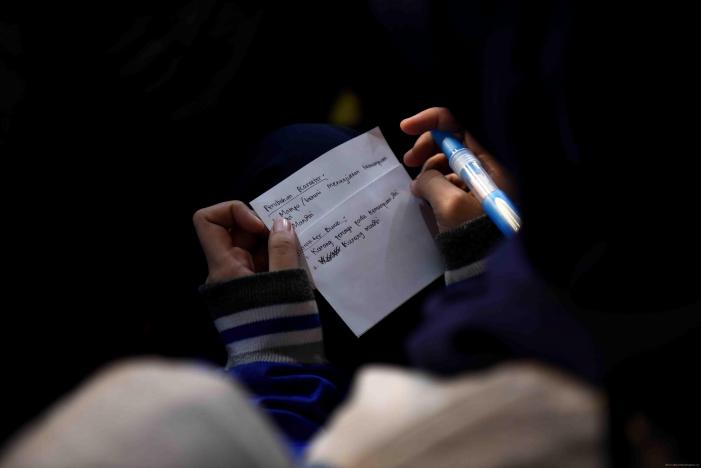 Perubahan Karakter :
Mampu / berani menunjukkan kemampuan
Mandiri
Karakter Buruk :
Kurang percaya pada kemampuan diri
Kurang mandiri